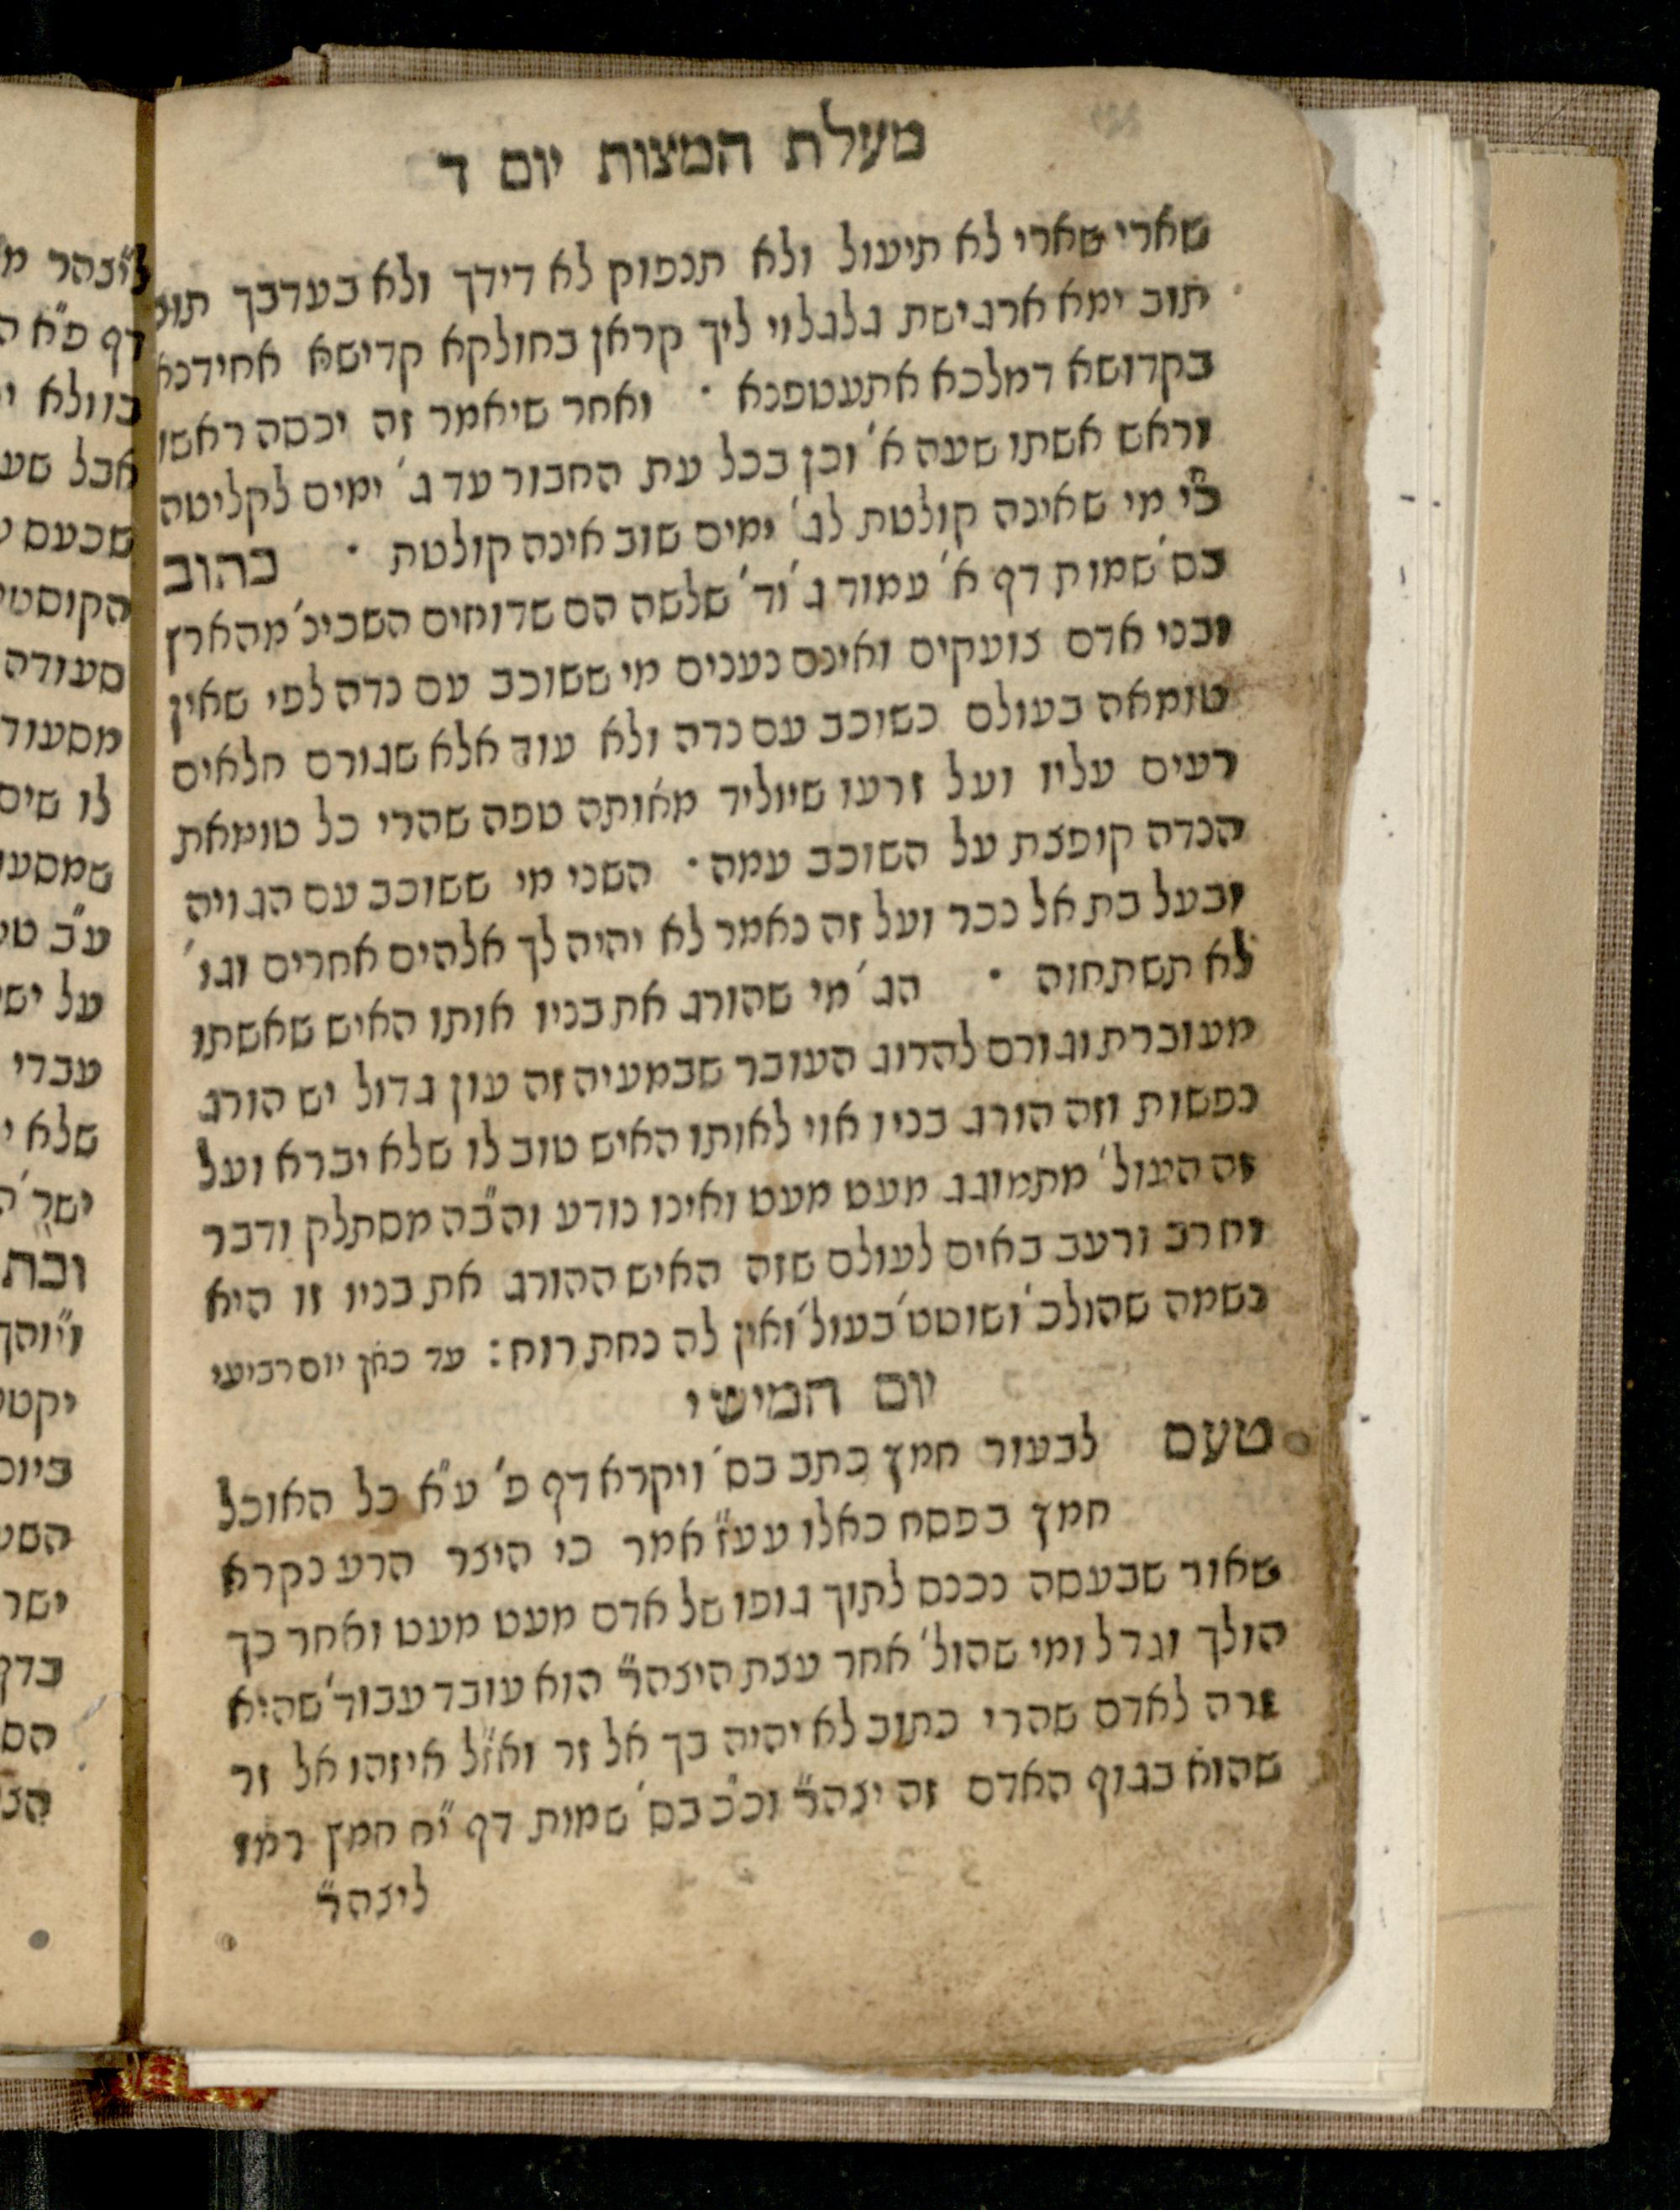 מעלת המצות יום ד
שארי שארי לא תיעול ולא תנפוק לא דידך ולא בעדבך תוב
תוב ימא ארגישת גלגלוי ליך קראן בחולקא קדישא אחידנא
בקדושא דמלכא אתעטפנא · ואחר שיאמר זה יכסה ראשו
וראש אשתו שעה א' וכן בכל עת החבור עד ג' ימים לקליטה
כי מי שאינה קולטת לג' ימים שוב אינה קולטת · כהוב
בס' שמות דף א' עמוד ג' וד' שלשה הם שדוחים השכינ' מהארץ
ובני אדם צועקים ואינם נענים מי ששוכב עם נדה לפי שאין
טומאה בעולם כשוכב עם נדה ולא עוד אלא שגורם חלאים
רעים עליו ועל זרעו שיוליד מאותה טפה שהרי כל טומאת
הנדה קופצת על השוכב עמה · השני מי ששוכב עם הגויה
ובעל בת אל נכר ועל זה נאמר לא יהיה לך אלהים אחרים וגו'
לא תשתחוה · הג' מי שהורג את בניו אותו האיש שאשתו
מעוברת וגורם להרוג העובר שבמעיה זה עון גדול יש הורג
נפשות וזה הורג בניו אוי לאותו האיש טוב לו שלא יברא ועל
זה העול' מתמוגג מעט מעט ואינו נודע וה"בה מסתלק ודבר
וחרב ורעב באים לעולם שזה האיש ההורג את בניו זו היא
נשמה שהולכ' ושוטט' בעול' ואין לה נחת רוח : עד כאן יום רביעי
יום המישי
טעם לבעור חמץ כתב בס' ויקרא דף פ' ע"א כל האוכל
חמץ בפסח כאלו עע"ז אמר כי היצר הרע נקרא
שאור שבעסה נכנס לתוך גופו של אדם מעט מעט ואחר כך
הולך וגדל ומי שהול' אחר עצת היצה"ר הוא עובד עבוד' שהיא
זרה לאדם שהרי כתוב לא יהיה בך אל זר וא"זל איזהו אל זר
שהוא בגוף האדם זה יצה"ר וכ"כ בס' שמות דף י"ח חמץ רמז
ליצה"ר